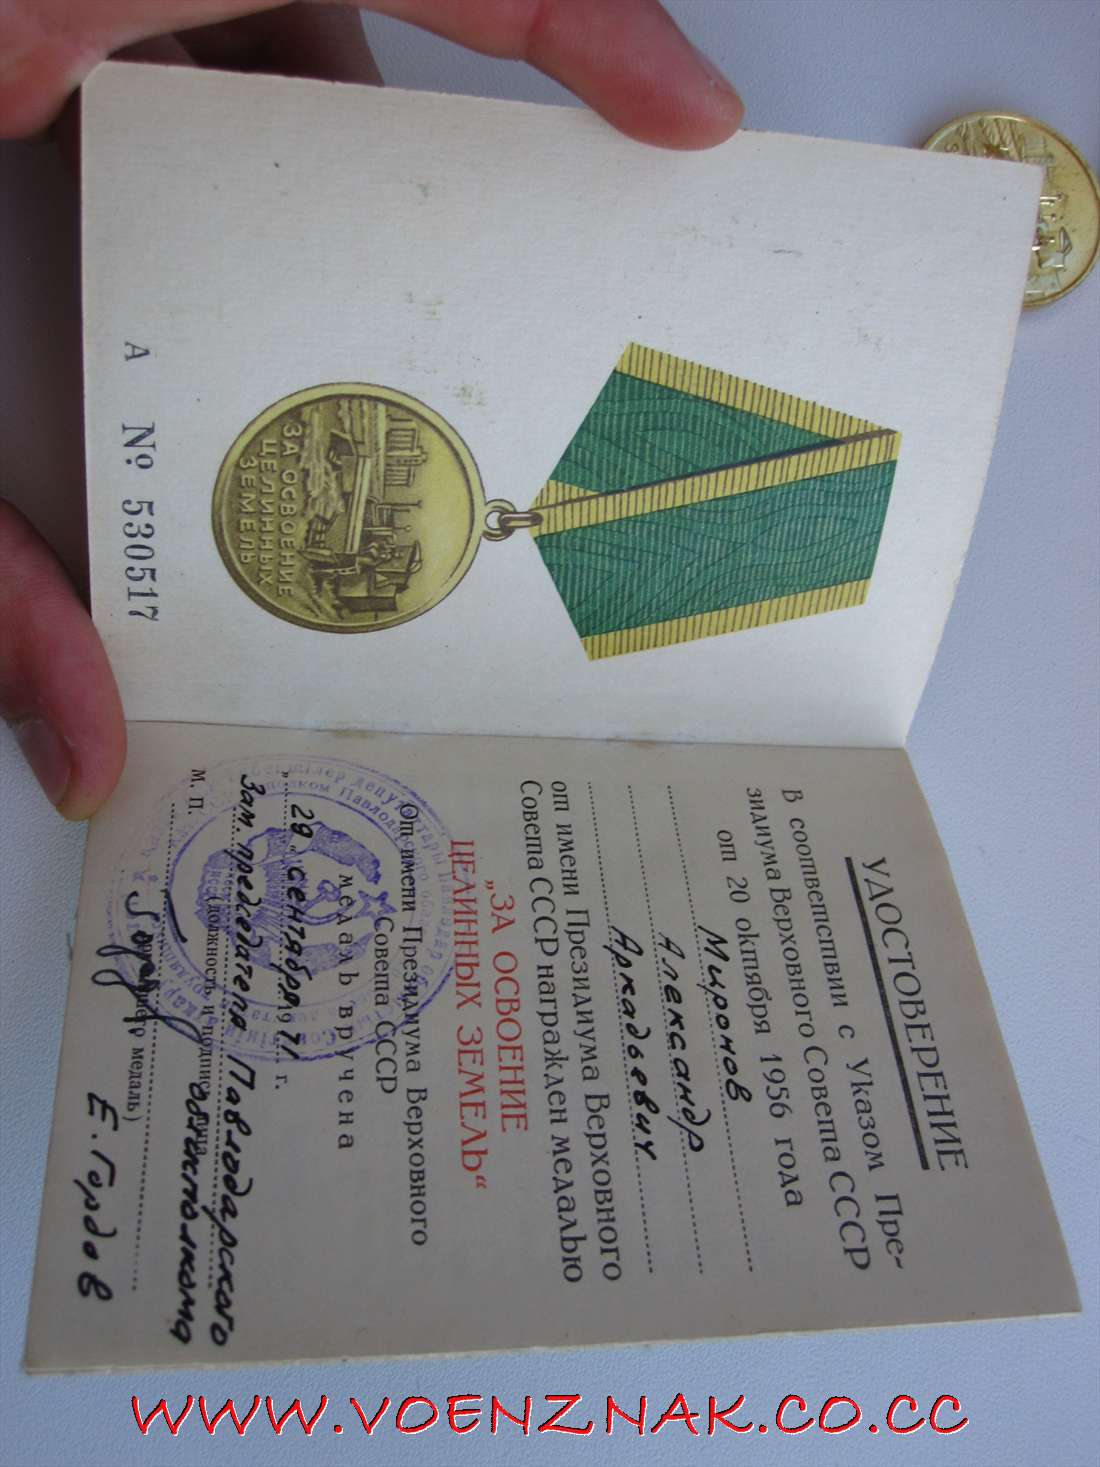 ЗА ОСВОЕНИЕ
ЦЕЛИННЫХ
ЗЕМЕЛЬ
А № 530517
УДОСТОВЕРЕНИЕ
В соответствии с Указом Пре-
зидиума Верховного Совета СССР
от 20 октября 1956 года
Миронов
Александр
Аркадьевич
от имени Президиума Верховного
Совета СССР награжден медалью
„ЗА ОСВОЕНИЕ
ЦЕЛИННЫХ ЗЕМЕЛЬ“
От имени Президиума Верховного
Совета СССР
медаль вручена
„29“ сентября 1971 г.
Зам. председателя Павлодарского
облисполкома
М. П.
(должность и подпись лица,
медаль)
Е. Гордов
WWW.VOENZNAK.CO.CC